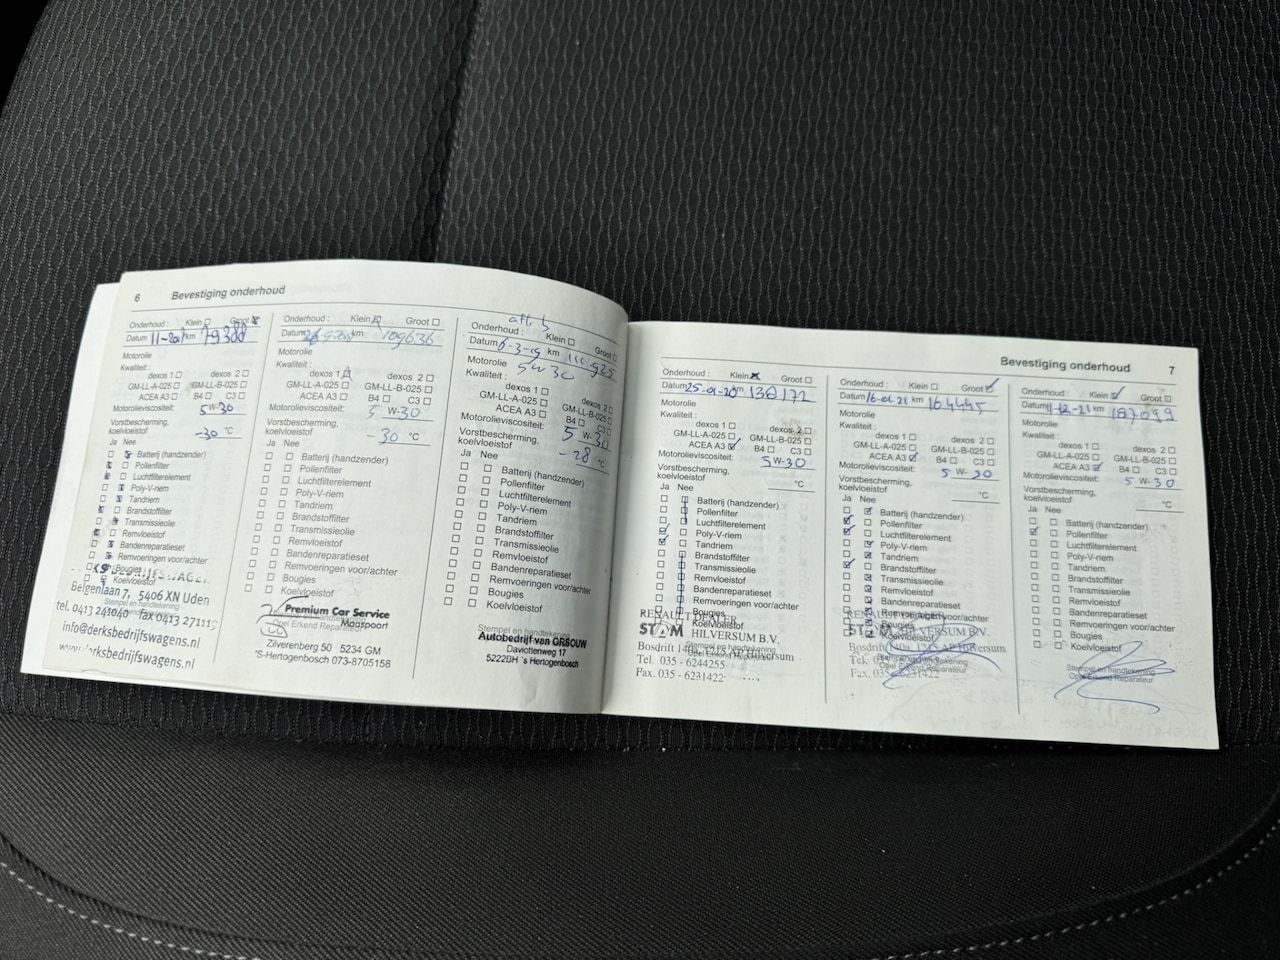 6 Bevestiging onderhoud
Onderhoud : Klein Groot
Datum km 79388
Motorolie
Kwaliteit :
dexos 1 dexos 2
GM-LL-A-025 GM-LL-B-025
ACEA A3 B4 C3
Motorolieviscositeit: 5 W-30
Vorstbescherming,
koelvloeistof -30 °C
Ja Nee
Batterij (handzender)
Pollenfilter
Luchtfilterelement
Poly-V-riem
Tandriem
Brandstoffilter
Transmissieolie
Remvloeistof
Bandenreparatieset
Remvoeringen voor/achter
Bougies
Koelvloeistof
Stempel en handtekening
Belgenlaan 7, 5406 XN Uden
tel. 0413 241040 fax 0413 271115
info@derksbedrijfswagens.nl
www.derksbedrijfswagens.nl
Onderhoud : Klein Groot
Datum km 109636
Motorolie
Kwaliteit :
dexos 1 dexos 2
GM-LL-A-025 GM-LL-B-025
ACEA A3 B4 C3
Motorolieviscositeit: 5 W-30
Vorstbescherming,
koelvloeistof -30 °C
Ja Nee
Batterij (handzender)
Pollenfilter
Luchtfilterelement
Poly-V-riem
Tandriem
Brandstoffilter
Transmissieolie
Remvloeistof
Bandenreparatieset
Remvoeringen voor/achter
Bougies
Koelvloeistof
Premium Car Service
Maaspoort
Opel Erkend Reparateur
Zilverenberg 50 5234 GM
'S-Hertogenbosch 073-8705158
Onderhoud : Klein Groot
Datum km
Motorolie 5w30
Kwaliteit :
dexos 1 dexos 2
GM-LL-A-025 GM-LL-B-025
ACEA A3 B4 C3
Motorolieviscositeit: 5 W-30
Vorstbescherming,
koelvloeistof -28 °C
Ja Nee
Batterij (handzender)
Pollenfilter
Luchtfilterelement
Poly-V-riem
Tandriem
Brandstoffilter
Transmissieolie
Remvloeistof
Bandenreparatieset
Remvoeringen voor/achter
Bougies
Koelvloeistof
Stempel en handtekening
Autobedrijf van ORSOUW
Daviottenweg 17
5222BH 's Hertogenbosch
Bevestiging onderhoud 7
Onderhoud : Klein Groot
Datum 25-01-20 km 138172
Motorolie
Kwaliteit :
dexos 1 dexos 2
GM-LL-A-025 GM-LL-B-025
ACEA A3 B4 C3
Motorolieviscositeit: 5 W-30
Vorstbescherming,
koelvloeistof °C
Ja Nee
Batterij (handzender)
Pollenfilter
Luchtfilterelement
Poly-V-riem
Tandriem
Brandstoffilter
Transmissieolie
Remvloeistof
Bandenreparatieset
Remvoeringen voor/achter
Bougies
Koelvloeistof
RENAULT DEALER
STAM HILVERSUM B.V.
Stempel en handtekening
Bosdrift 140a, 1215 AP Hilversum
Opel Erkend Reparateur
Tel. 035 - 6244255
Fax. 035 - 6231422
Onderhoud : Klein Groot
Datum 16-01-21 km 164445
Motorolie
Kwaliteit :
dexos 1 dexos 2
GM-LL-A-025 GM-LL-B-025
ACEA A3 B4 C3
Motorolieviscositeit: 5 W-30
Vorstbescherming,
koelvloeistof °C
Ja Nee
Batterij (handzender)
Pollenfilter
Luchtfilterelement
Poly-V-riem
Tandriem
Brandstoffilter
Transmissieolie
Remvloeistof
Bandenreparatieset
Remvoeringen voor/achter
Bougies
Koelvloeistof
RENAULT DEALER
STAM HILVERSUM B.V.
Stempel en handtekening
Bosdrift 140a, 1215 AP Hilversum
Opel Erkend Reparateur
Fax. 035 - 6231422
Onderhoud : Klein Groot
Datum 11-12-21 km 187099
Motorolie
Kwaliteit :
dexos 1 dexos 2
GM-LL-A-025 GM-LL-B-025
ACEA A3 B4 C3
Motorolieviscositeit: 5 W-30
Vorstbescherming,
koelvloeistof °C
Ja Nee
Batterij (handzender)
Pollenfilter
Luchtfilterelement
Poly-V-riem
Tandriem
Brandstoffilter
Transmissieolie
Remvloeistof
Bandenreparatieset
Remvoeringen voor/achter
Bougies
Koelvloeistof
Stempel en handtekening
Opel Erkend Reparateur